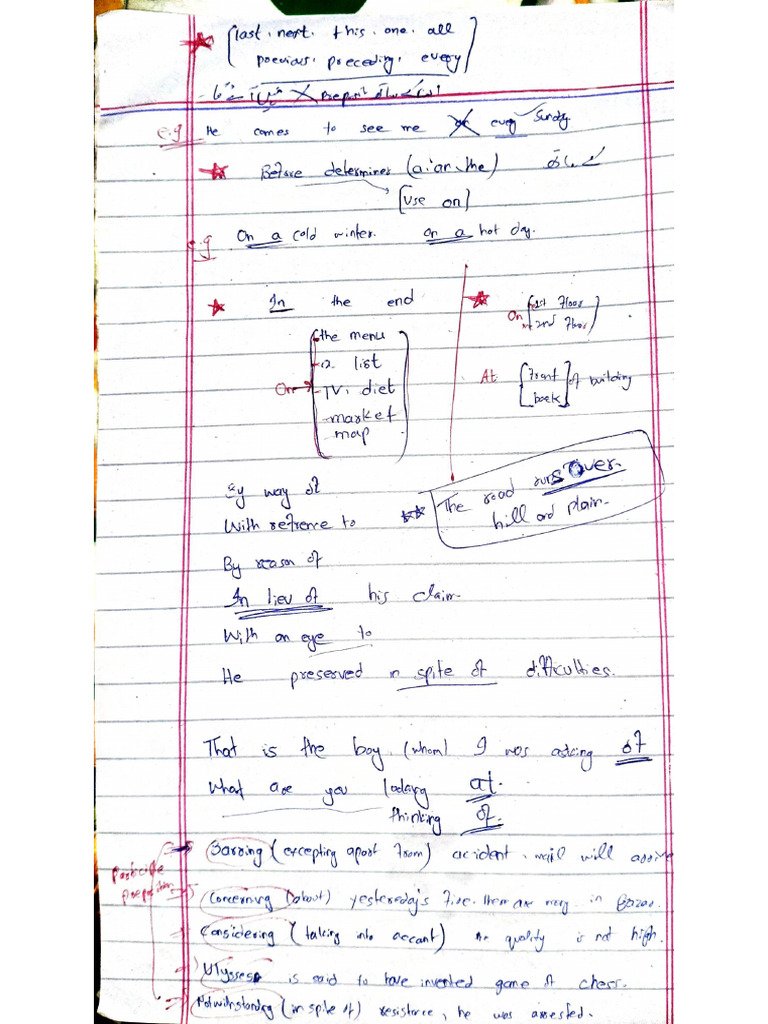 last. next. this. one. all
previous. preceding. every
e.g He comes to see me on every Sunday
Before determines (a.an.the)
[use on]
e.g On a cold winter. on a hot day.
In the end
On 1st floor
2nd floor
the menu
a list
On TV. diet
market
map
At front of building
back
By way of
With refrence to
The road runs over.
hill and plain.
By reason of
In lieu of his claim.
With an eye to
He preserved in spite of difficulties.
That is the boy. (whom) I was asking of
What are you looking at.
thinking of.
Participle preposition
Barring (excepting apart from) accident. mail will arrive
Concerning (about) yestereday's fire. in Bazar.
Considering (taking into accont) quality is not high.
Ulysses is said to have invented game of chess.
Notwithstanding (in spite of) resistance, he was arrested.